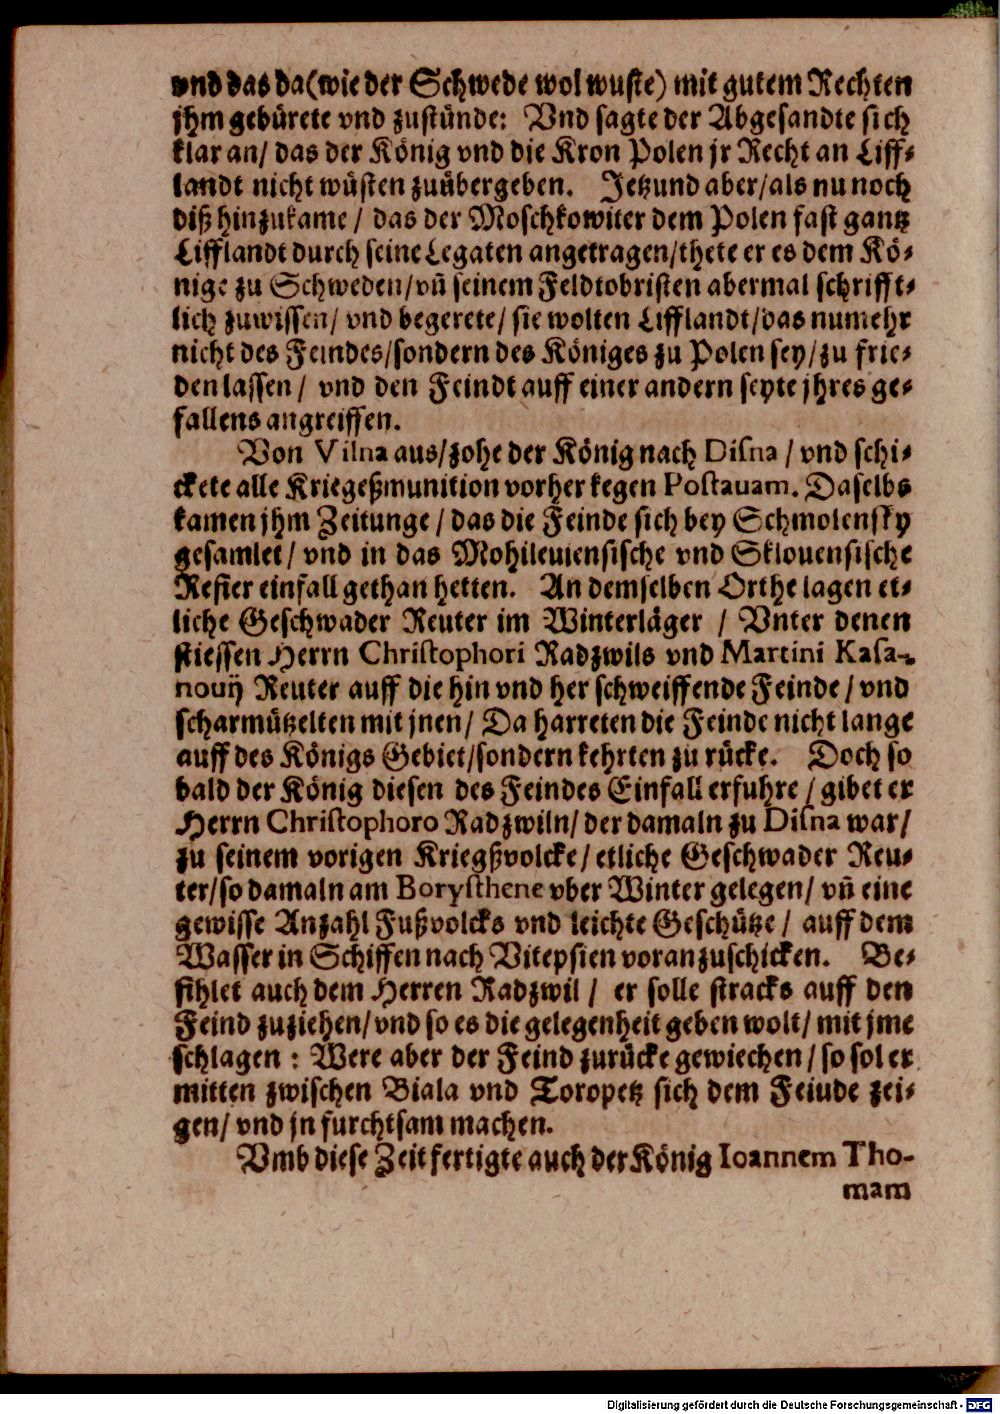 vnd das da(wie der Schwede wol wuste) mit gutem Rechten
jhm gebürete vnd zustünde: Vnd sagte der Abgesandte sich
klar an/ das der König vnd die Kron Polen jr Recht an Liff-
landt nicht wüsten zuübergeben. Jetzund aber/als nu noch
diß hinzukame / das der Moschkowiter dem Polen fast gantz
Lifflandt durch seine Legaten angetragen/thete er es dem Kö-
nige zu Schweden/vñ seinem Feldtobristen abermal schrifft-
lich zuwissen/ vnd begerete/ sie wolten Lifflandt/das numehr
nicht des Feindes/sondern des Königes zu Polen sey/zu frie-
den lassen/ vnd den Feindt auff einer andern seyte jhres ge-
fallens angreiffen.
Von Vilna aus/zohe der König nach Disna / vnd schi-
ckete alle Kriegeßmunition vorher kegen Postauam. Daselbs
kamen jhm Zeitunge / das die Feinde sich bey Schmolensky
gesamlet/ vnd in das Mohileuiensische vnd Sklouensische
Refier einfall gethan hetten. An demselben Orthe lagen et-
liche Geschwader Reuter im Winterläger / Vnter denen
stiessen Herrn Christophori Radzwils vnd Martini Kasa-
nouij Reuter auff die hin vnd her schweiffende Feinde/ vnd
scharmützelten mit jnen/ Da harreten die Feinde nicht lange
auff des Königs Gebiet/sondern kehrten zu rücke. Doch so
bald der König diesen des Feindes Einfall erfuhre / gibet er
Herrn Christophoro Radzwiln/ der damaln zu Disna war/
zu seinem vorigen Kriegßvolcke/ etliche Geschwader Reu-
ter/so damaln am Borysthene vber Winter gelegen/ vñ eine
gewisse Anzahl Fußvolcks vnd leichte Geschütze/ auff dem
Wasser in Schiffen nach Vitepsien voranzuschicken. Be-
fihlet auch dem Herren Radzwil / er solle stracks auff den
Feind zuziehen/vnd so es die gelegenheit geben wolt/ mit jme
schlagen : Were aber der Feind zurücke gewiechen/ so sol er
mitten zwischen Biala vnd Toropetz sich dem Feiude zei-
gen/ vnd jn furchtsam machen.
Vmb diese Zeit fertigte auch der König Ioannem Tho-
mam
Digitalisierung gefördert durch die Deutsche Forschungsgemeinschaft - DFG